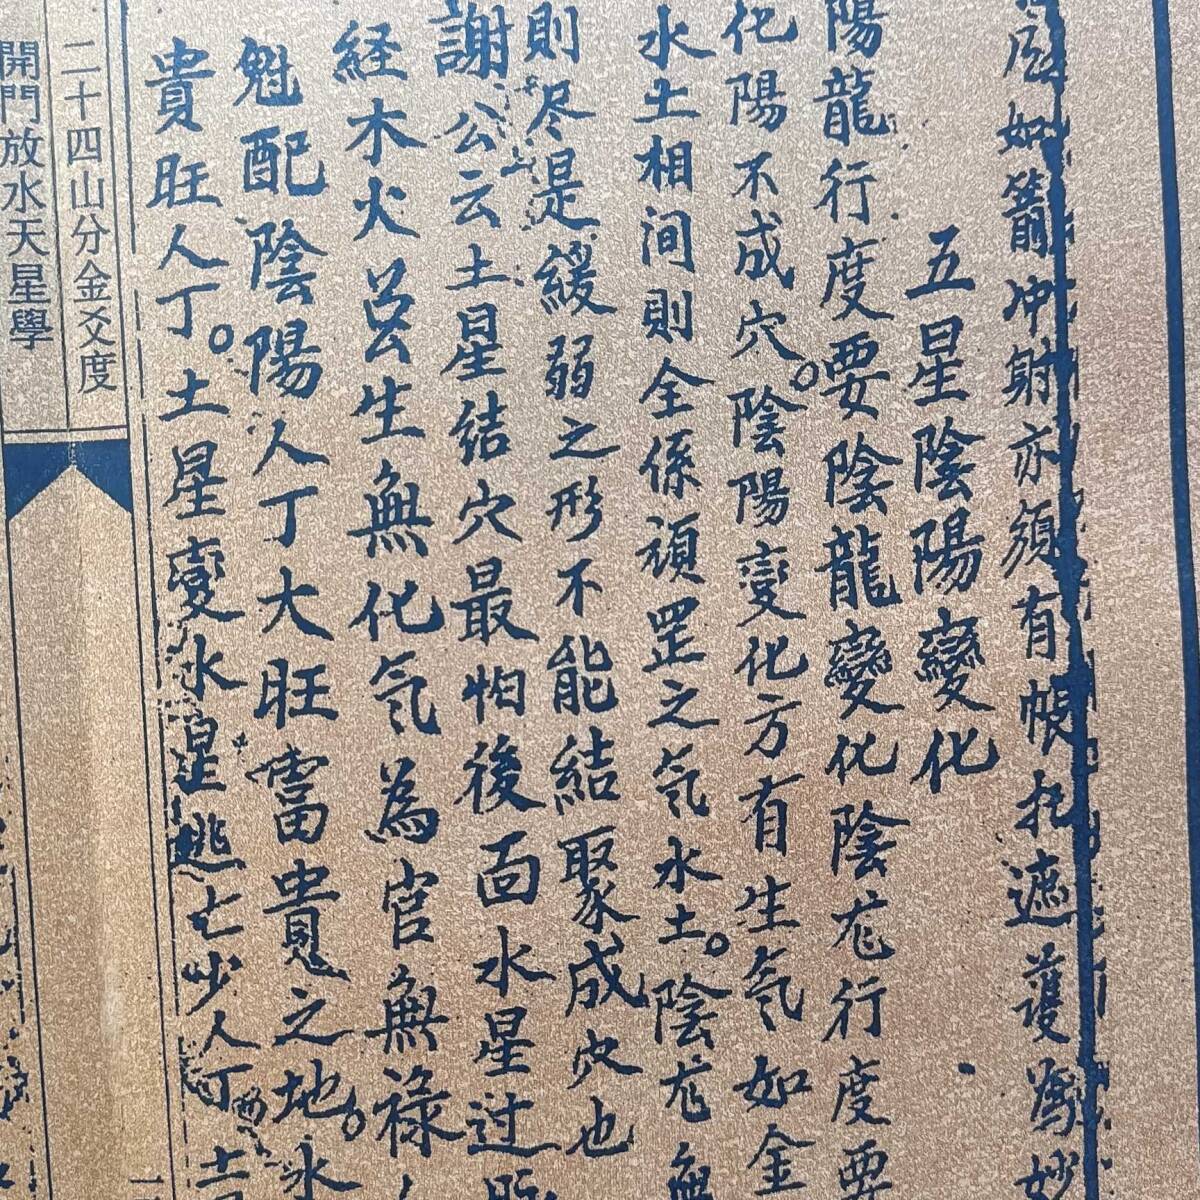 如箭冲射亦須有帳托遮護為妙
五星陰陽變化
陽龍行度要陰龍變化陰龙行度要
化陽不成穴。陰陽變化方有生氣如金
水土相间則全係頑罡之氣水土。陰龙無
則尽是緩弱之形不能結聚成穴也
謝公云土星结穴最怕後面水星过
経木火公生無化氣為官無禄
魁配陰陽人丁大旺富貴之地。水
貴旺人丁。土星變水星逃亡少人丁土
二十四山分金爻度
開門放水天星學